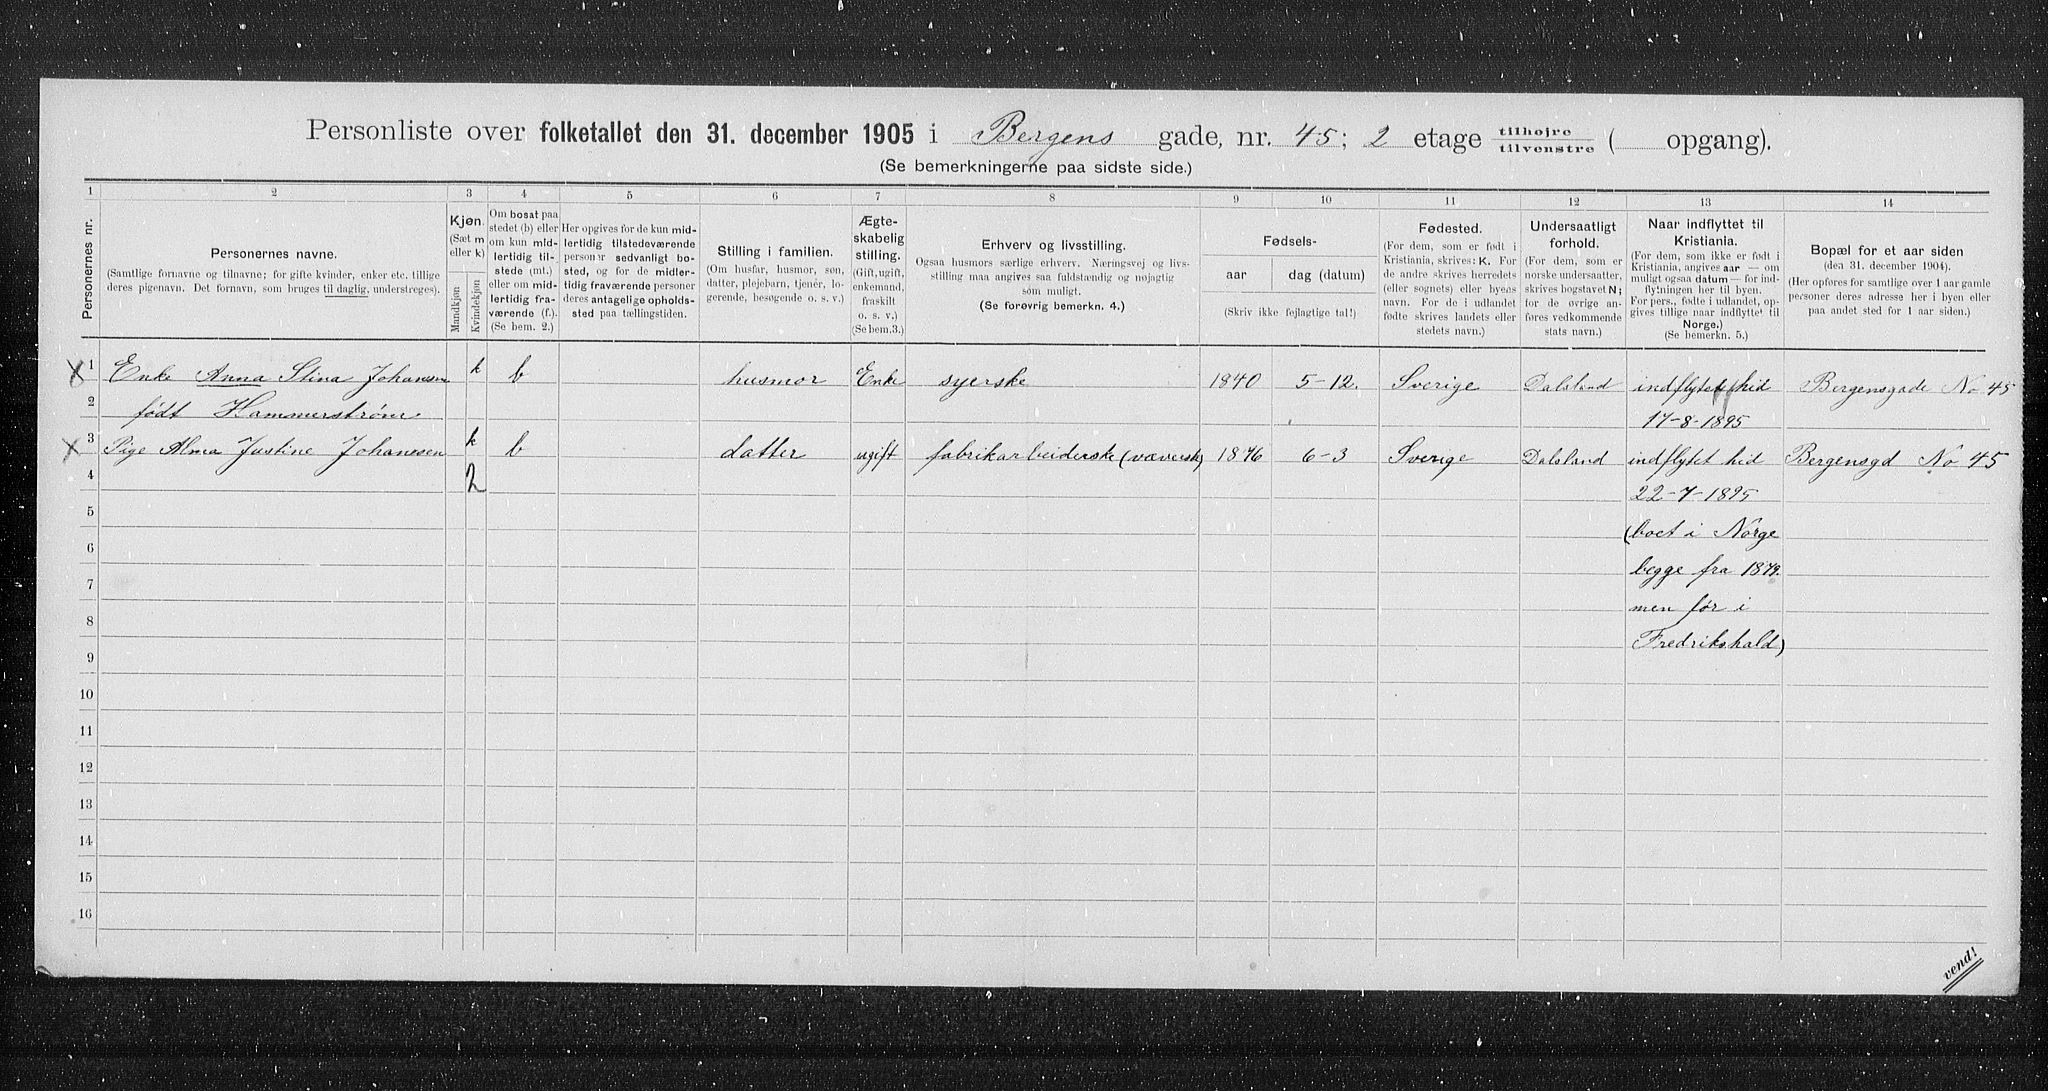 Personliste over folketallet den 31. december 1905 i Bergens gade, nr. 45; 2 etage tilhøjre tilvenstre ( opgang).
(Se bemerkningerne paa sidste side.)
1 2 3 4 5 6 7 8 9 10 11 12 13 14
Personernes nr.
Personernes navne.
(Samtlige fornavne og tilnavne; for gifte kvinder, enker etc. tillige
deres pigenavn. Det fornavn, som bruges til daglig, understreges).
Kjøn.
(Sæt m
eller k)
Mandkjøn
Kvindekjøn
Om bosat paa
stedet (b) eller
om kun mid-
lertidig til-
stede (mt.)
eller om mid-
lertidig fra-
værende (f.).
(Se bem. 2.)
Her opgives for de kun mid-
lertidig tilstedeværende
personer sedvanligt bo-
sted, og for de midler-
tidig fraværende personer
deres antagelige opholds-
sted paa tællingstiden.
Stilling i familien.
(Om husfar, husmor, søn,
datter, plejebarn, tjener, lo-
gerende, besøgende o. s. v.)
Ægte-
skabelig
stilling.
(Gift, ugift,
enkemand,
fraskilt
o. s. v.)
(Se bem.3.)
Erhverv og livsstilling.
Ogsaa husmors særlige erhverv. Næringsvej og livs-
stilling maa angives saa fuldstændig og nøjagtig
som muligt.
(Se forøvrig bemerkn. 4.)
Fødsels-
aar dag (datum)
(Skriv ikke fejlagtige tal!)
Fødested.
(For dem, som er født i
Kristiania, skrives: K. For
de andre skrives herredets
(eller sognets) eller byens
navn. For de i udlandet
fødte skrives landets eller
stedets navn.)
Undersaatligt
forhold.
(For dem, som er
norske undersaatter,
skrives bogstavet N;
for de øvrige an-
føres vedkommende
stats navn.)
Naar indflyttet til
Kristiania.
(For dem, som ikke er født i
Kristiania, angives aar — om
muligt ogsaa datum — for ind-
flytningen her til byen.
For pers., fødte i udlandet, op-
gives tillige naar indflyttet til
Norge.)
(Se bemerkn. 5.)
Bopæl for et aar siden
(den 31. december 1904.)
(Her opføres for samtlige over 1 aar gamle
personer deres adresse her i byen eller
paa andet sted for 1 aar siden.)
1 Enke Anna Stina Johansen k b husmor Enke syerske 1840 5-12. Sverige Dalsland indflytet hid Bergensgade No 45
2 født Hammerstrøm 17-8-1895
3 Pige Alma Justine Johansen k b datter ugift fabrikarbeiderske (væversk) 1876 6-3 Sverige Dalsland indflytet hid Bergensgd No 45
4 2 22-7-1895
5 (boet i Norge
6 begge fra 1879.
7 men før i
8 Fredrikshald)
9
10
11
12
13
14
15
16
vend!